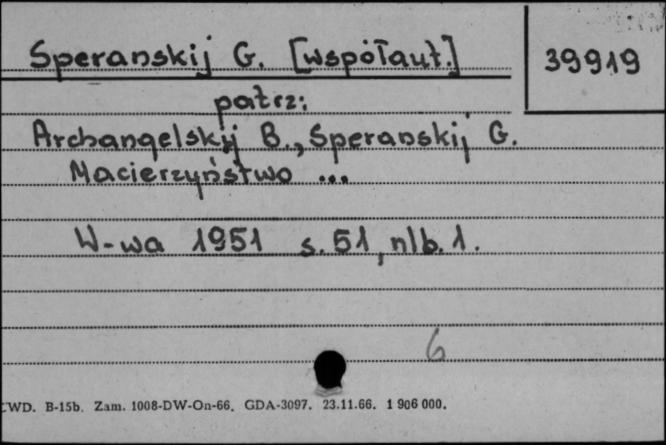 Speranskij G. [współaut.] 39919
patrz:
Archangelskij B., Speranskij G.
Macierzyństwo ...
W-wa 1951 s. 51, nlb. 1.
6
CWD. B-15b. Zam. 1008-DW-On-66. GDA-3097. 23.11.66. 1 906 000.